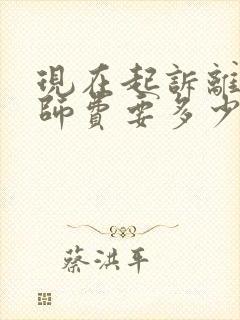 現在起訴離
師費要多少
蔡洪平